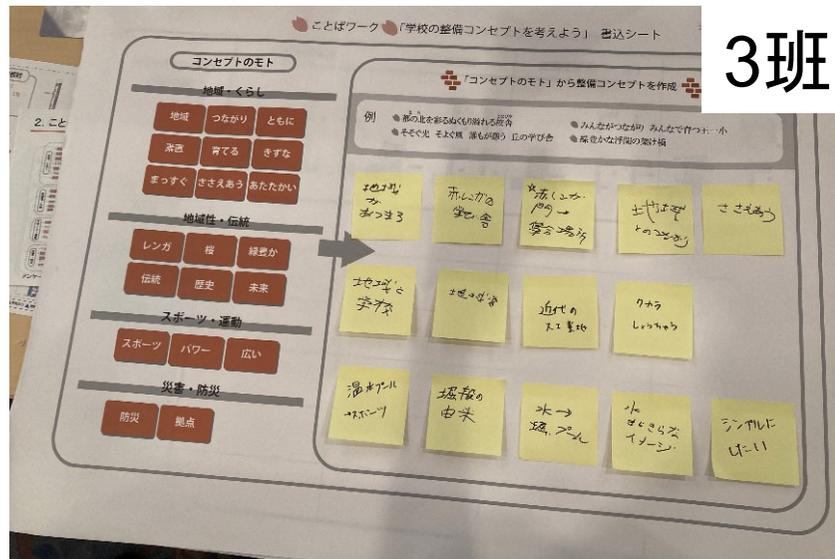 3班
ことばワーク 「学校の整備コンセプトを考えよう」 書込シート
コンセプトのモト
地域・くらし
地域 つながり ともに
素直 育てる きずな
まっすぐ ささえあう あたたかい
地域性・伝統
レンガ 桜 緑豊か
伝統 歴史 未来
スポーツ・運動
スポーツ パワー 広い
災害・防災
防災 拠点
「コンセプトのモト」から整備コンセプトを作成
例
都の北を彩るぬくもり溢れる校舎
そそぐ光 そよぐ風 誰もが憩う 丘の学び舎
みんながつながり みんなで育つ
緑豊かな
地域
が
あつまる
赤レンガの
学び舎
☆赤レンガ
門→
集合場所
地域
とのつながり
ささえあう
地域と
学校
近代の
チカラ
しょうちゅう
温水プール
スポーツ
堀船の
由来
水→
堀、プール
水
イメージ
シンボルに
したい
2. こと